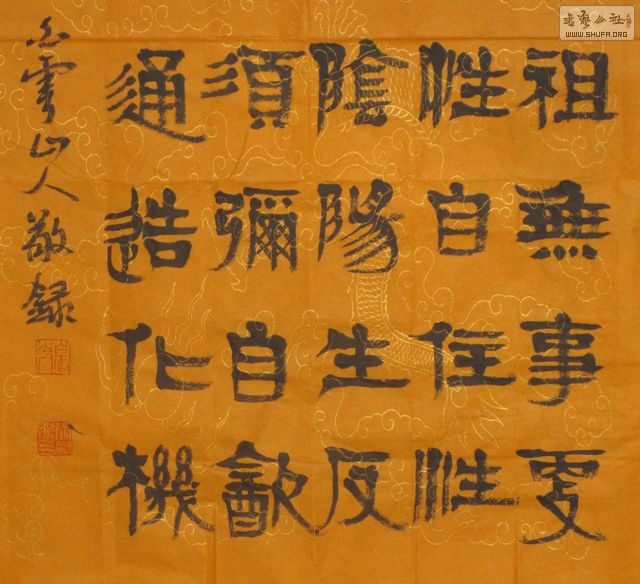 祖無事更
性自住性
陰陽生反
須彌自㱃
通造化機
白雲山人敬録
书艺公社
WWW.SHUFA.ORG